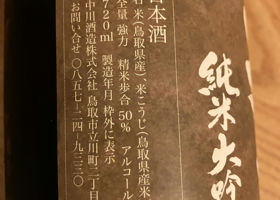 純米大吟
日本酒
米(鳥取県産)、米こうじ(鳥取県産米
全量 強力 精米歩合 50% アルコール
720ml 製造年月 枠外に表示
中川酒造株式会社 鳥取市立川町二丁目
お問い合せ 〇八五七-二四-九三三〇